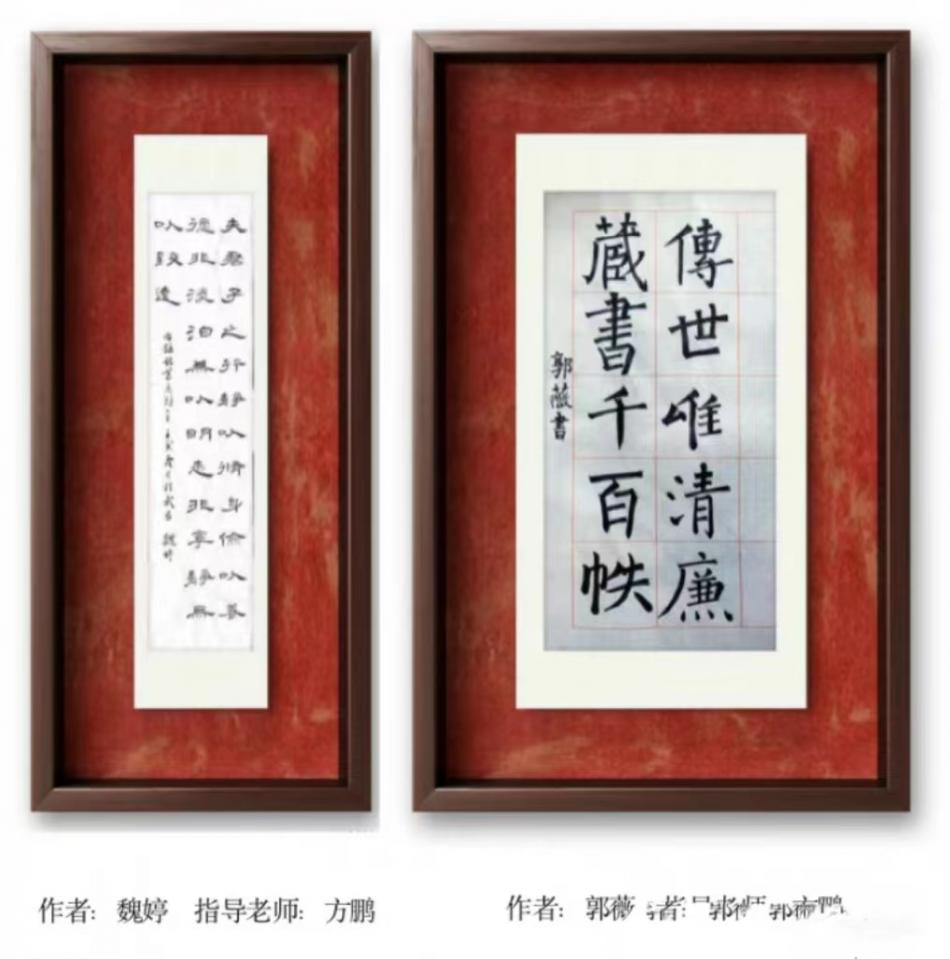 夫君子之行靜以脩身儉以養
德非淡泊無以明志非寧靜無
以致遠
魏婷
傳世唯清廉
藏書千百帙
郭薇書
作者：魏婷 指导老师：方鹏
作者：郭薇